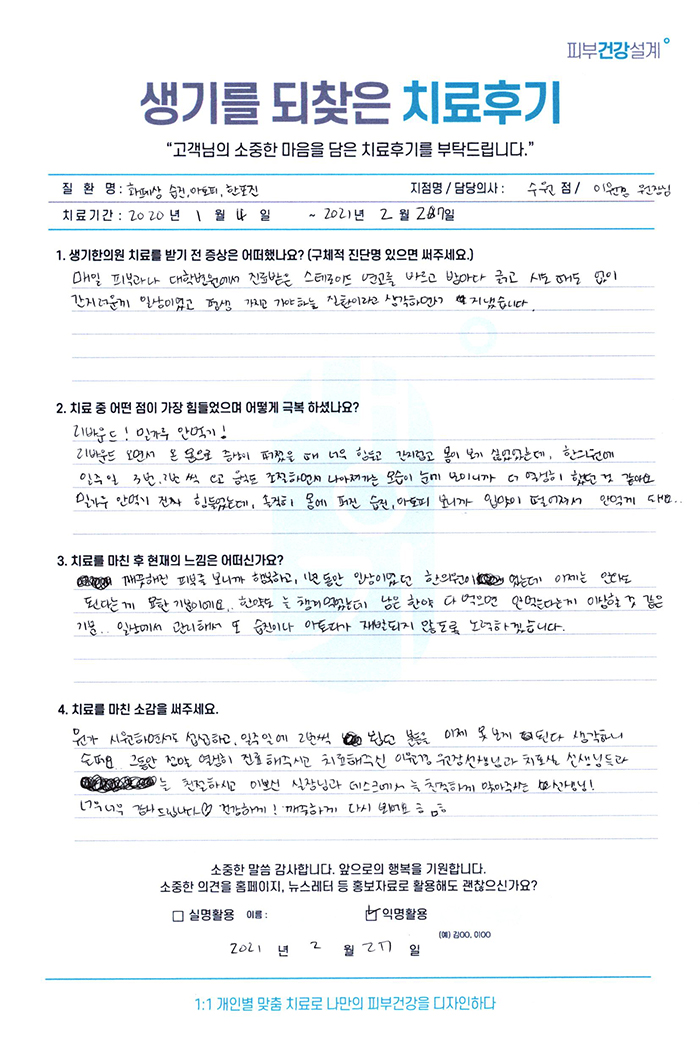 피부건강설계
생기를 되찾은 치료후기
"고객님의 소중한 마음을 담은 치료후기를 부탁드립니다."
질 환 명 : 화폐상 습진, 아토피, 한포진 지점명 / 담당의사 : 수원 점 / 이원경 원장님
치료기간 : 2020 년 1 월 4 일 ~ 2021 년 2 월 27 일
1. 생기한의원 치료를 받기 전 증상은 어떠했나요? (구체적 진단명 있으면 써주세요.)
매일 피부과나 대학병원에서 진료받은 스테로이드 연고를 바르고 밤마다 긁고 시도 때도 없이
간지러운게 일상이였고 평생 가지고 가야하는 질환이라고 생각하면서 지냈습니다.
2. 치료 중 어떤 점이 가장 힘들었으며 어떻게 극복 하셨나요?
리바운드! 밀가루 안먹기!
리바운드 오면서 온 몸으로 증상이 퍼졌을 때 너무 힘들고 간지럽고 몸이 보기 싫었었는데, 한의원에
일주일 3번, 2번 씩 오고 음식도 조절하면서 나아져가는 모습이 눈에 보이니까 더 열심히 했던 것 같아요
밀가루 안먹기 진짜 힘들었는데, 솔직히 몸에 퍼진 습진, 아토피 보니까 입맛이 떨어져서 안먹게 돼요..
3. 치료를 마친 후 현재의 느낌은 어떠신가요?
깨끗해진 피부를 보니까 행복하고, 1년 동안 일상이였던 한의원이 였는데 이제는 안와도
된다는게 묘한 기분이에요.. 한약도 늘 챙겨먹었는데 남은 한약 다 먹으면 안먹는다는게 이상할 것 같은
기분.. 일상에서 관리해서 또 습진이나 아토피가 재발되지 않도록 노력하겠습니다.
4. 치료를 마친 소감을 써주세요.
뭔가 시원하면서도 섭섭하고, 일주일에 2번씩 봤던 분들을 이제 못보게 된다 생각하니
슬퍼요. 그동안 정말 열심히 진료해주시고 치료해주신 이원경 원장선생님과 치료실 선생님들과
는 친절하시고 이쁘신 실장님과 데스크에서 늘 친절하게 맞아주시는 선생님!
너무너무 감사드립니다♡ 건강하게! 깨끗하게 다시
소중한 말씀 감사합니다. 앞으로의 행복을 기원합니다.
소중한 의견을 홈페이지, 뉴스레터 등 홍보자료로 활용해도 괜찮으신가요?
실명활용 이름 : 익명활용
(예) 김OO, 이OO
2021 년 2 월 27 일
1:1 개인별 맞춤 치료로 나만의 피부건강을 디자인하다